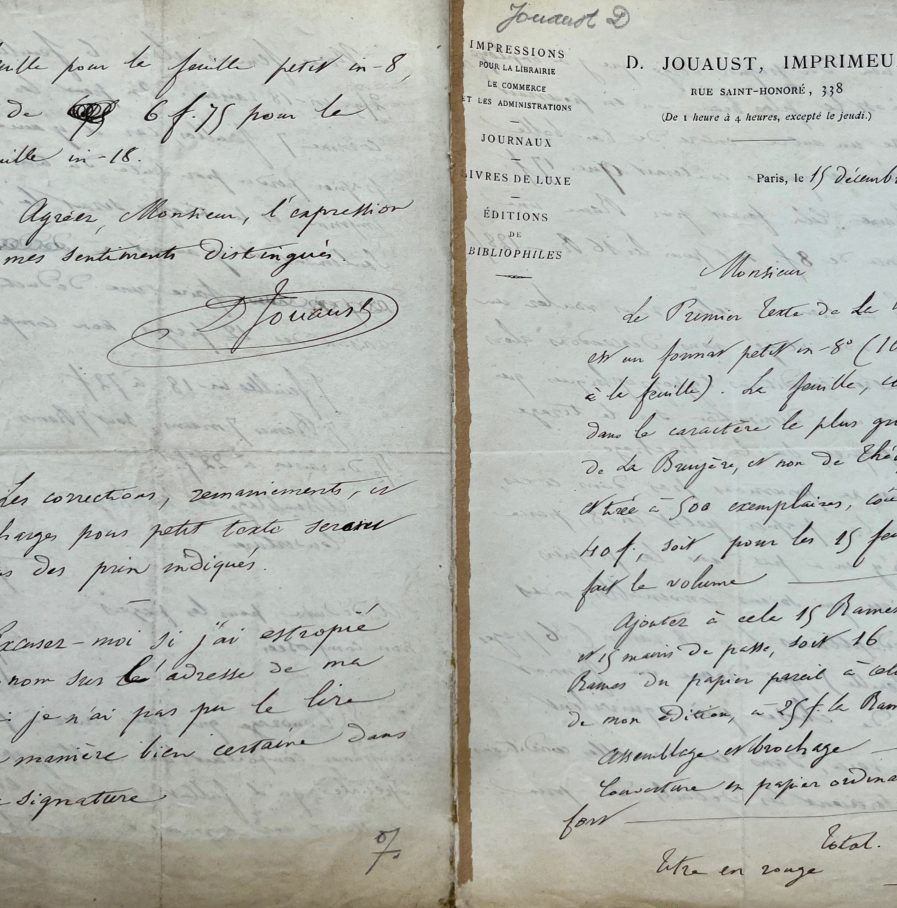 uille pour la feuille petit in-8,
de 6 f. 75 pour la
uille in-18.
Agréer, Monsieur, l'expression
mes sentiments distingués.
D Jouaust
Les corrections, remaniements, et
charges pour petit texte seront
us des prix indiqués.
Excusez-moi si j'ai estropié
nom sur l'adresse de ma
: je n'ai pas pu le lire
manière bien certaine dans
signature
Jouaust D
IMPRESSIONS
POUR LA LIBRAIRIE
LE COMMERCE
ET LES ADMINISTRATIONS
JOURNAUX
LIVRES DE LUXE
ÉDITIONS
DE
BIBLIOPHILES
D. JOUAUST, IMPRIMEU
RUE SAINT-HONORÉ, 338
(De 1 heure à 4 heures, excepté le jeudi.)
Paris, le 15 décemb
Monsieur
Le Premier Texte de La
est un format petit in-8° (16
à la feuille). La feuille, co
dans le caractère le plus gr
de La Bruyère, et non de Thé
et tirée à 500 exemplaires, coû
40 f., soit pour les 15 feu
fait le volume
Ajoutez à cela 15 Rames
et 15 mains de passe, soit 16
Rames du papier pareil à celu
de mon Edition, à 25 f. la Ram
Assemblage et brochage
Couverture en papier ordina
fort
Total.
Titre en rouge